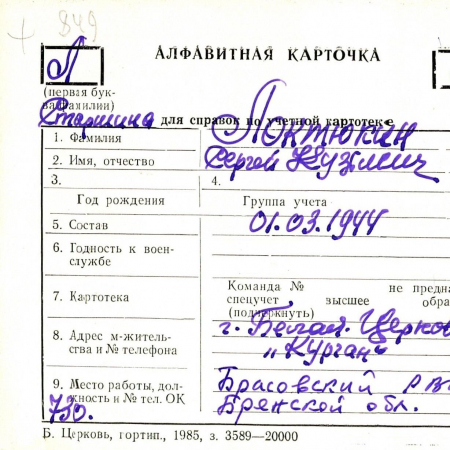 + 849
Л
АЛФАВИТНАЯ КАРТОЧКА
(первая бук-
ва фамилии)
Старшина для справок по учетной картотеке
1. Фамилия Локтюкин
2. Имя, отчество Сергей Кузьмич
3. 4.
Год рождения Группа учета
5. Состав 01.03.1944
6. Годность к воен-
службе
7. Картотека Команда № не предна
спецучет высшее обра
(подчеркнуть)
8. Адрес м-житель-
ства и № телефона г. Белая-Церков
„Курган"
9. Место работы, дол-
жность и № тел. ОК Брасовский РВ
730. Брянской обл.
Б. Церковь, гортип., 1985, з. 3589—20000